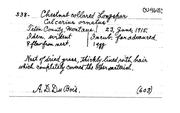 338.- Chestnut collared Longspur
Calcarius ornatus
Teton County, Montana; 22 June, 1915.
Iden. without Incub. far advanced.
Nest of dried grass, thickly lined with hair
which completely covers the other material.
A. D. Du Bois. (603)